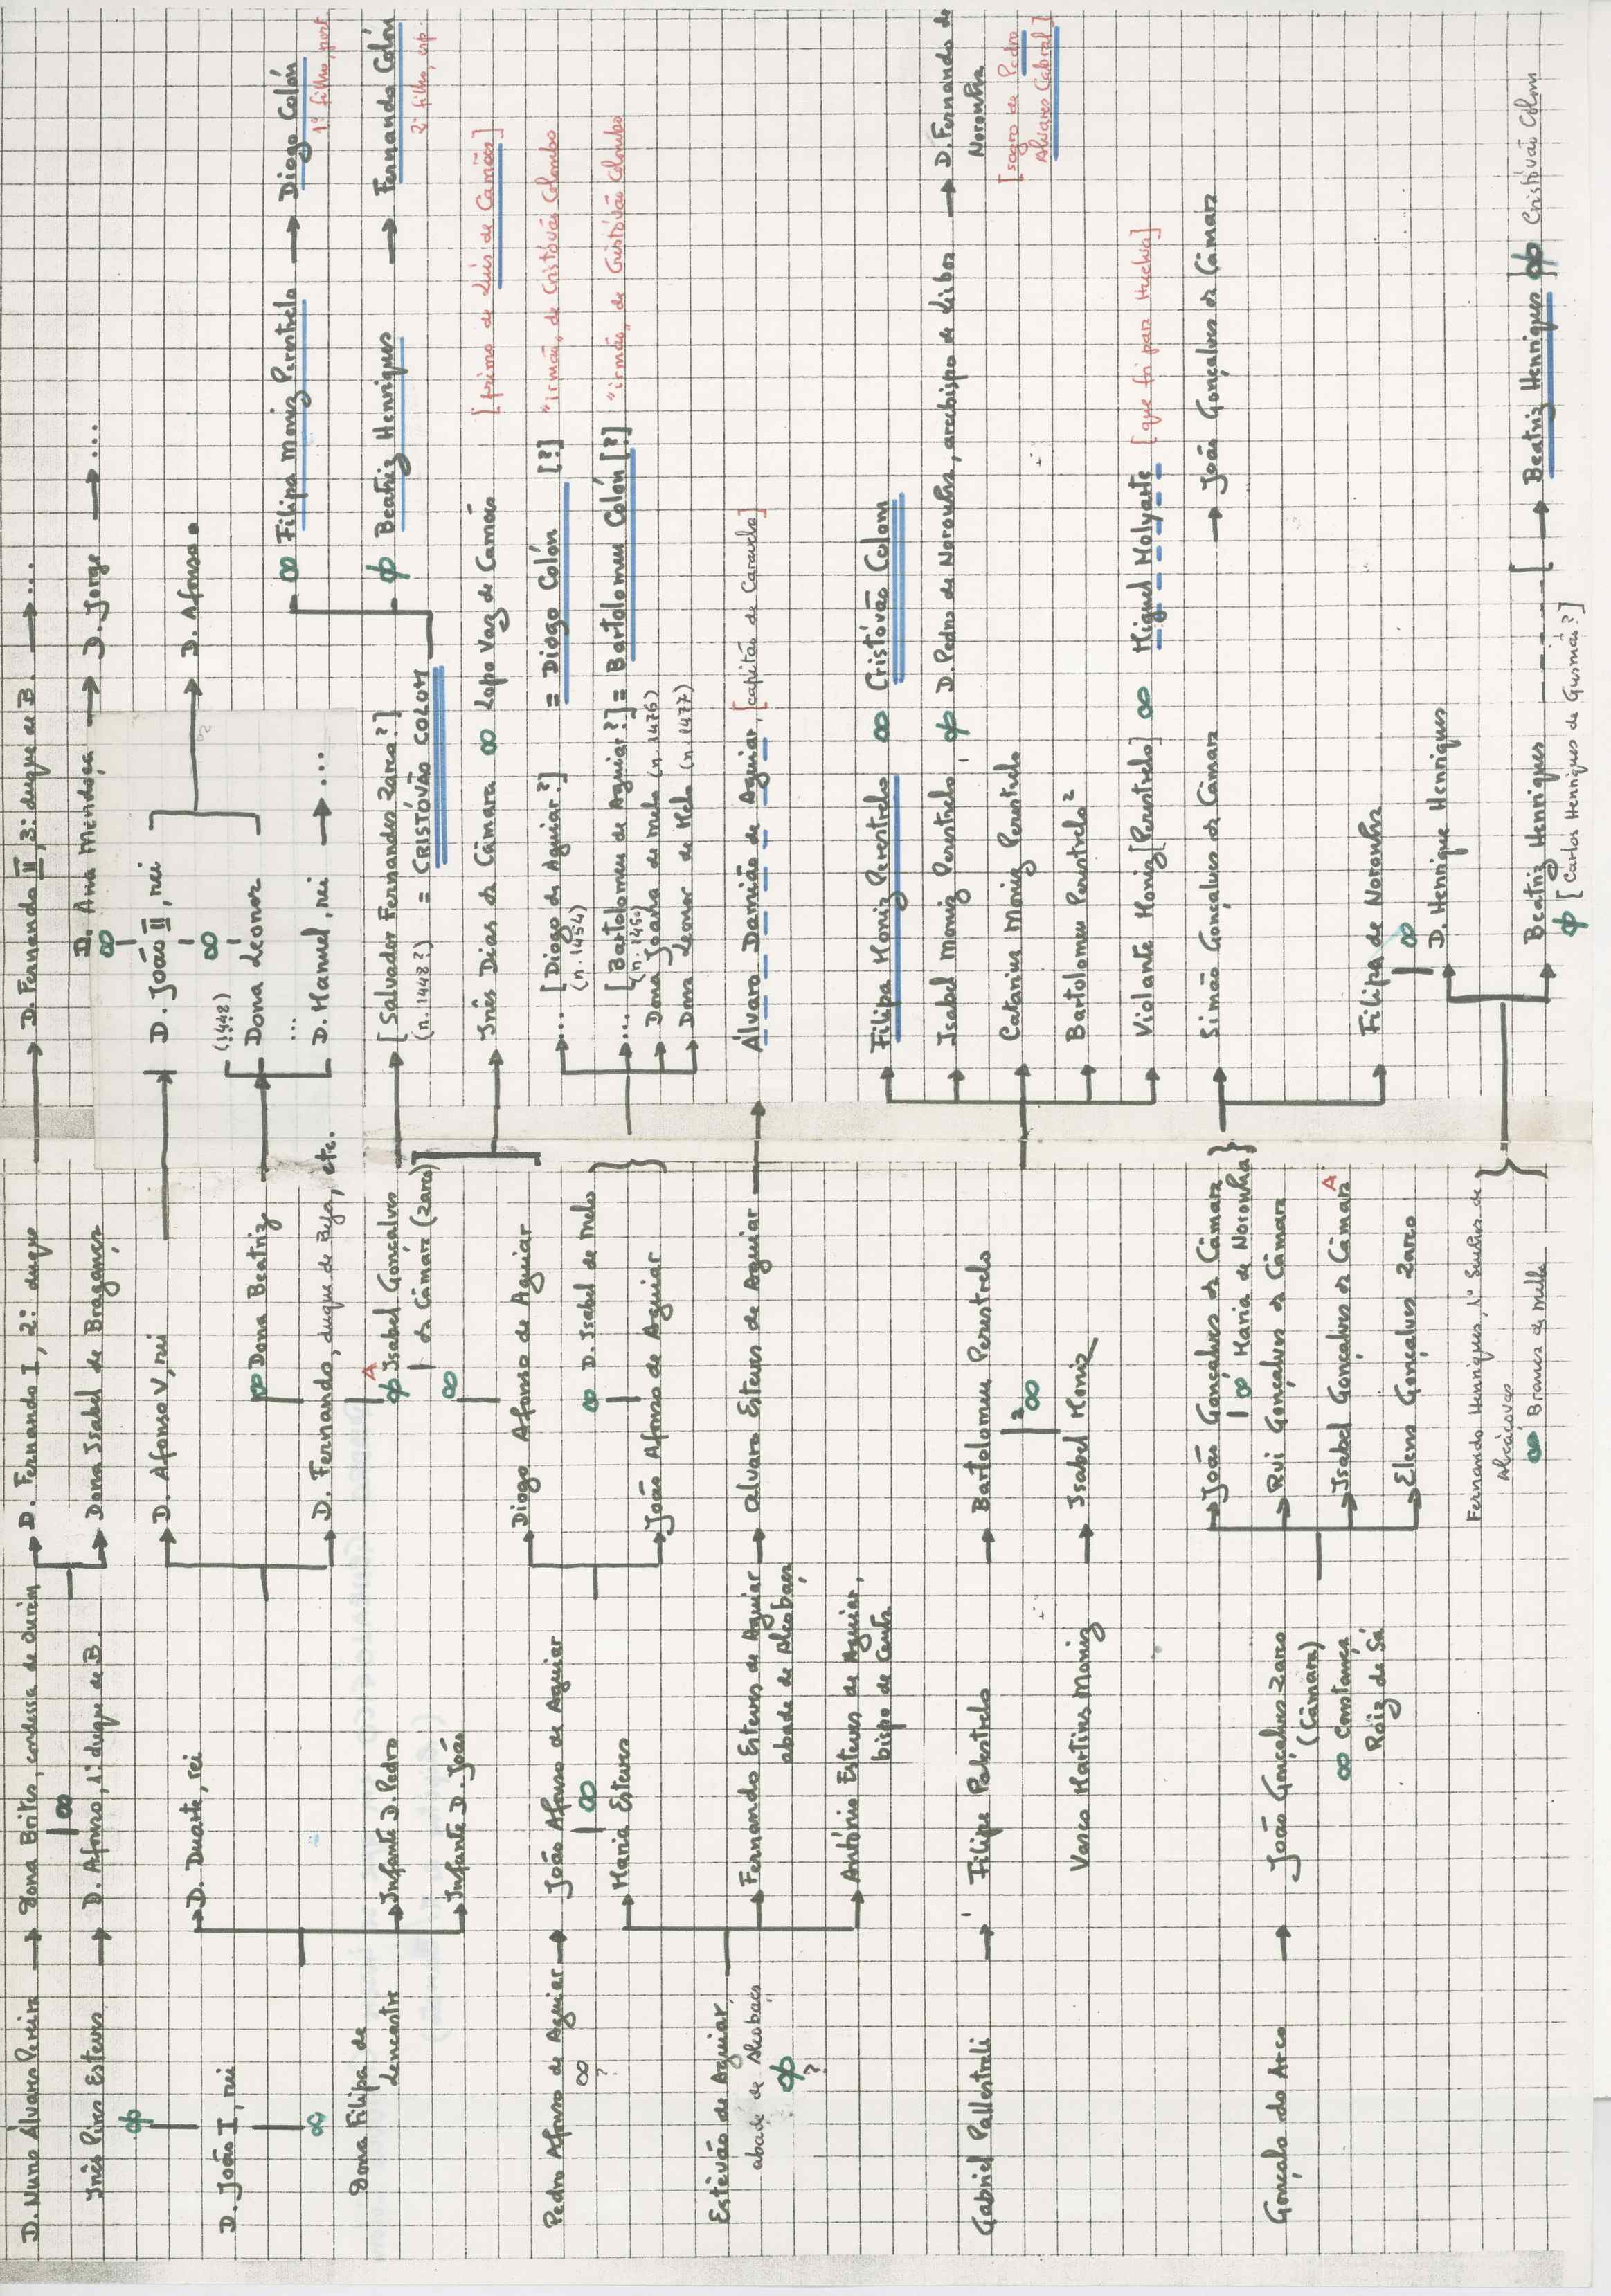 D. Nuno Álvares Pereira → Dona Brites, condessa de Ourém
∞
Inês Pires Esteves → D. Afonso, 1º duque de B.
D. João I, rei
Dona Filipa de
Lencastre
D. Duarte, rei
Infante D. Pedro
Infante D. João
Pedro Afonso de Aguiar → João Afonso de Aguiar
∞
?
∞
Maria Esteves
Estêvão de Aguiar,
abade de Alcobaça
?
Fernando Esteves de Aguiar → Álvaro Esteves de Aguiar →
abade de Alcobaça
António Esteves de Aguiar,
bispo de Ceuta
Gabriel Pallestreli → Filipe Palestrelo → Bartolomeu Perestrelo
2 ∞
Vasco Martins Moniz → Isabel Moniz
Gonçalo do Arco → João Gonçalves Zarco
(Câmara)
∞ Constança
Róiz de Sá
D. Fernando I, 2º duque → D. Fernando II, 3º duque de B. → ...
Dona Isabel de Bragança
D. Afonso V, rei
∞ Dona Beatriz
D. Fernando, duque de Beja, etc.
A
Isabel Gonçalves
da Câmara (Zarco)
∞
Diogo Afonso de Aguiar
∞ D. Isabel de Melo
João Afonso de Aguiar
João Gonçalves da Câmara
∞ Maria de Noronha
Rui Gonçalves da Câmara
Isabel Gonçalves da Câmara A
Elena Gonçalves Zarco
Fernando Henriques, 1º Senhor de
Alcáçovas
∞ Branca de Mello
D. Ana Mendoça → D. Jorge → ...
∞
D. João II, rei
∞
→ D. Afonso
(1448)
Dona Leonor
...
D. Manuel, rei → ...
[Salvador Fernandes Zarco?]
(n. 1448?) = CRISTÓVÃO COLOM
∞ Filipa Moniz Perestrelo → Diogo Colón
1º filho, port
Beatriz Henriques → Fernando Colón
2º filho, esp.
Inês Dias da Câmara ∞ Lopo Vaz de Camões [primo de Luís de Camões]
... [Diogo de Aguiar?] = Diogo Colón [?] "irmão" de Cristóvão Colombo
(n. 1454)
... [Bartolomeu de Aguiar?] = Bartolomeu Colón [?] "irmão" de Cristóvão Colombo
(n. 1450)
Dona Joana de Melo (n. 1476)
Dona Leonor de Melo (n. 1477)
Álvaro Damião de Aguiar, [capitão de Caravela]
Filipa Moniz Perestrelo ∞ Cristóvão Colom
Isabel Moniz Perestrelo, D. Pedro de Noronha, arcebispo de Lisboa → D. Fernando de
Noronha
[sogro de Pedro
Álvares Cabral]
Catarina Moniz Perestrelo
Bartolomeu Perestrelo²
Violante Moniz [Perestrelo] ∞ Miguel Molyarte [que foi para Huelva]
Simão Gonçalves da Câmara → João Gonçalves da Câmara
Filipa de Noronha
∞
D. Henrique Henriques
Beatriz Henriques [ → Beatriz Henriques] Cristóvão Colom
[Carlos Henriques de Gusmão?]